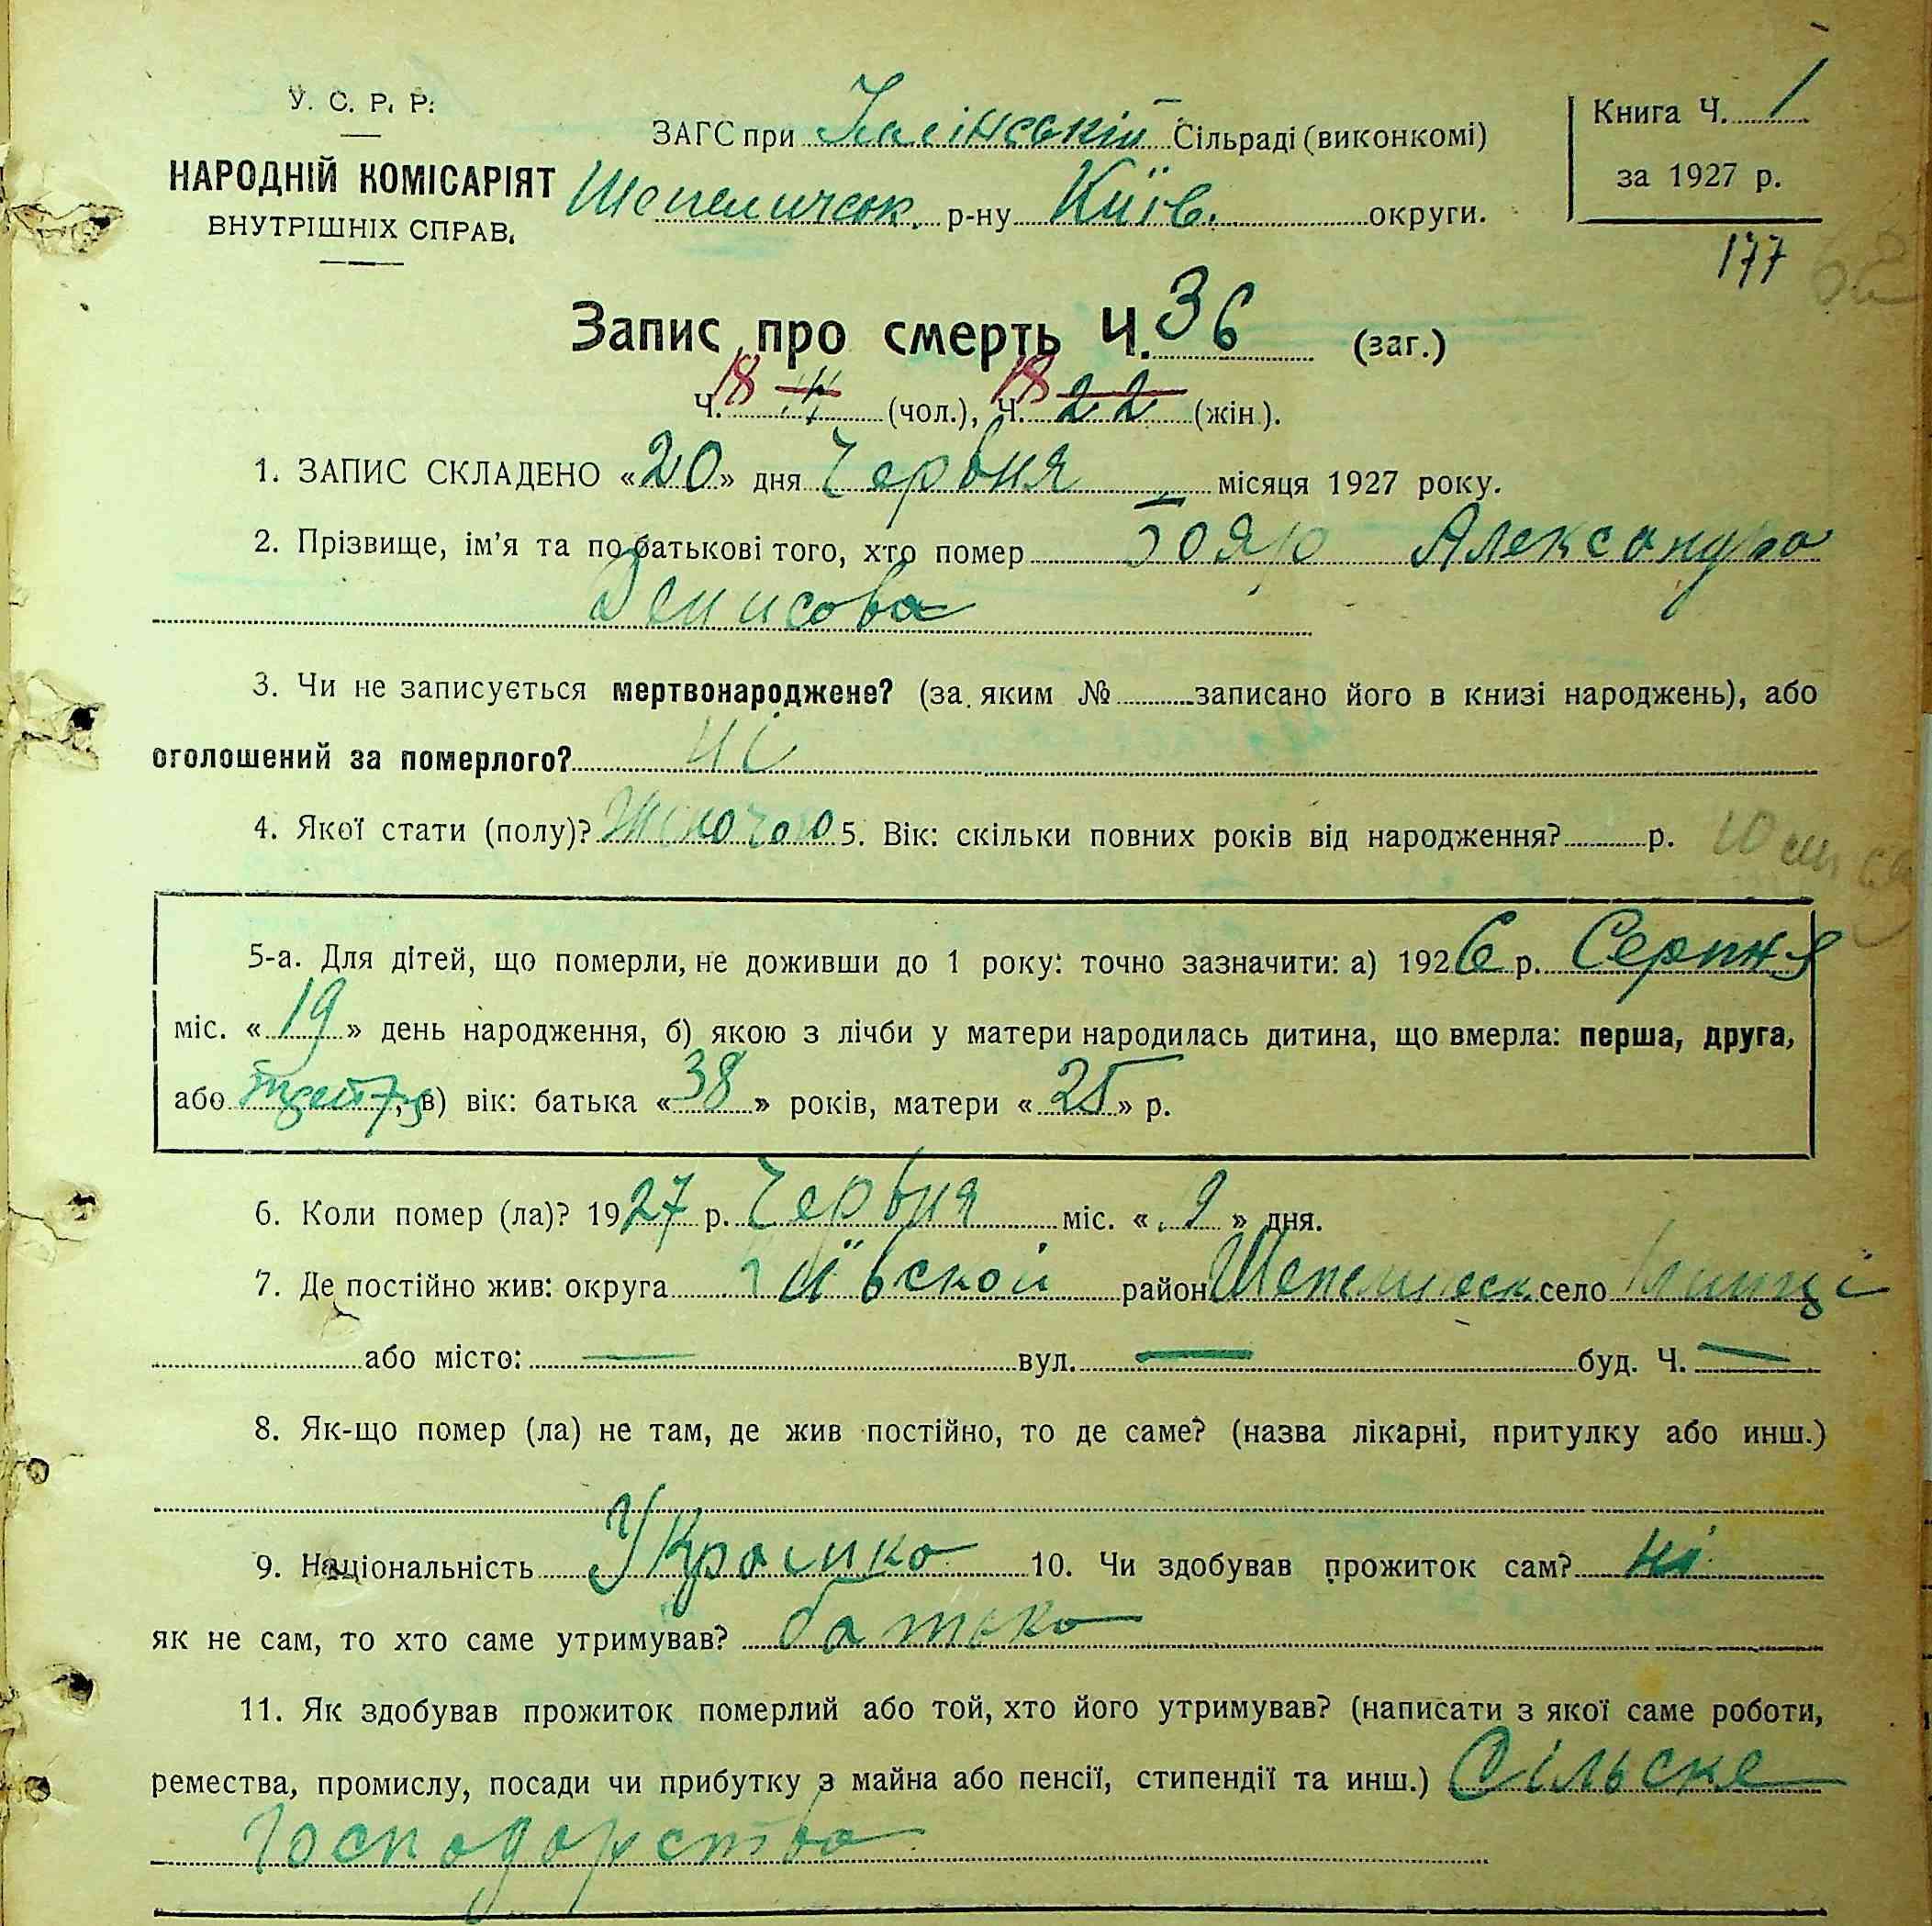 У. С. Р. Р.
НАРОДНІЙ КОМІСАРІЯТ
ВНУТРІШНІХ СПРАВ.
ЗАГС при Сільраді (виконкомі)
Шепеличск. р-ну Київ. округи.
Книга Ч. 1
за 1927 р.
177
Запис про смерть Ч. 36 (заг.)
Ч. 18 (чол.), Ч. 18 22 (жін.).
1. ЗАПИС СКЛАДЕНО «20» дня Червня місяця 1927 року.
2. Прізвище, ім'я та по батькові того, хто помер Бояр Александра
Денисова
3. Чи не записується мертвонароджене? (за яким № записано його в книзі народжень), або
оголошений за померлого? ні
4. Якої стати (полу)? Жіночого 5. Вік: скільки повних років від народження? р. 10
5-а. Для дітей, що померли, не доживши до 1 року: точно зазначити: а) 1926 р. Серпня
міс. «19» день народження, б) якою з лічби у матери народилась дитина, що вмерла: перша, друга,
або в) вік: батька «38» років, матери «25» р.
6. Коли помер (ла)? 1927 р. Червня міс. « » дня.
7. Де постійно жив: округа Київской район Шепелическ село
або місто: — вул. — буд. Ч. —
8. Як-що помер (ла) не там, де жив постійно, то де саме? (назва лікарні, притулку або инш.)
9. Національність Українка 10. Чи здобував прожиток сам? ні
як не сам, то хто саме утримував? батько
11. Як здобував прожиток померлий або той, хто його утримував? (написати з якої саме роботи,
ремества, промислу, посади чи прибутку з майна або пенсії, стипендії та инш.) Сільске
Господарство